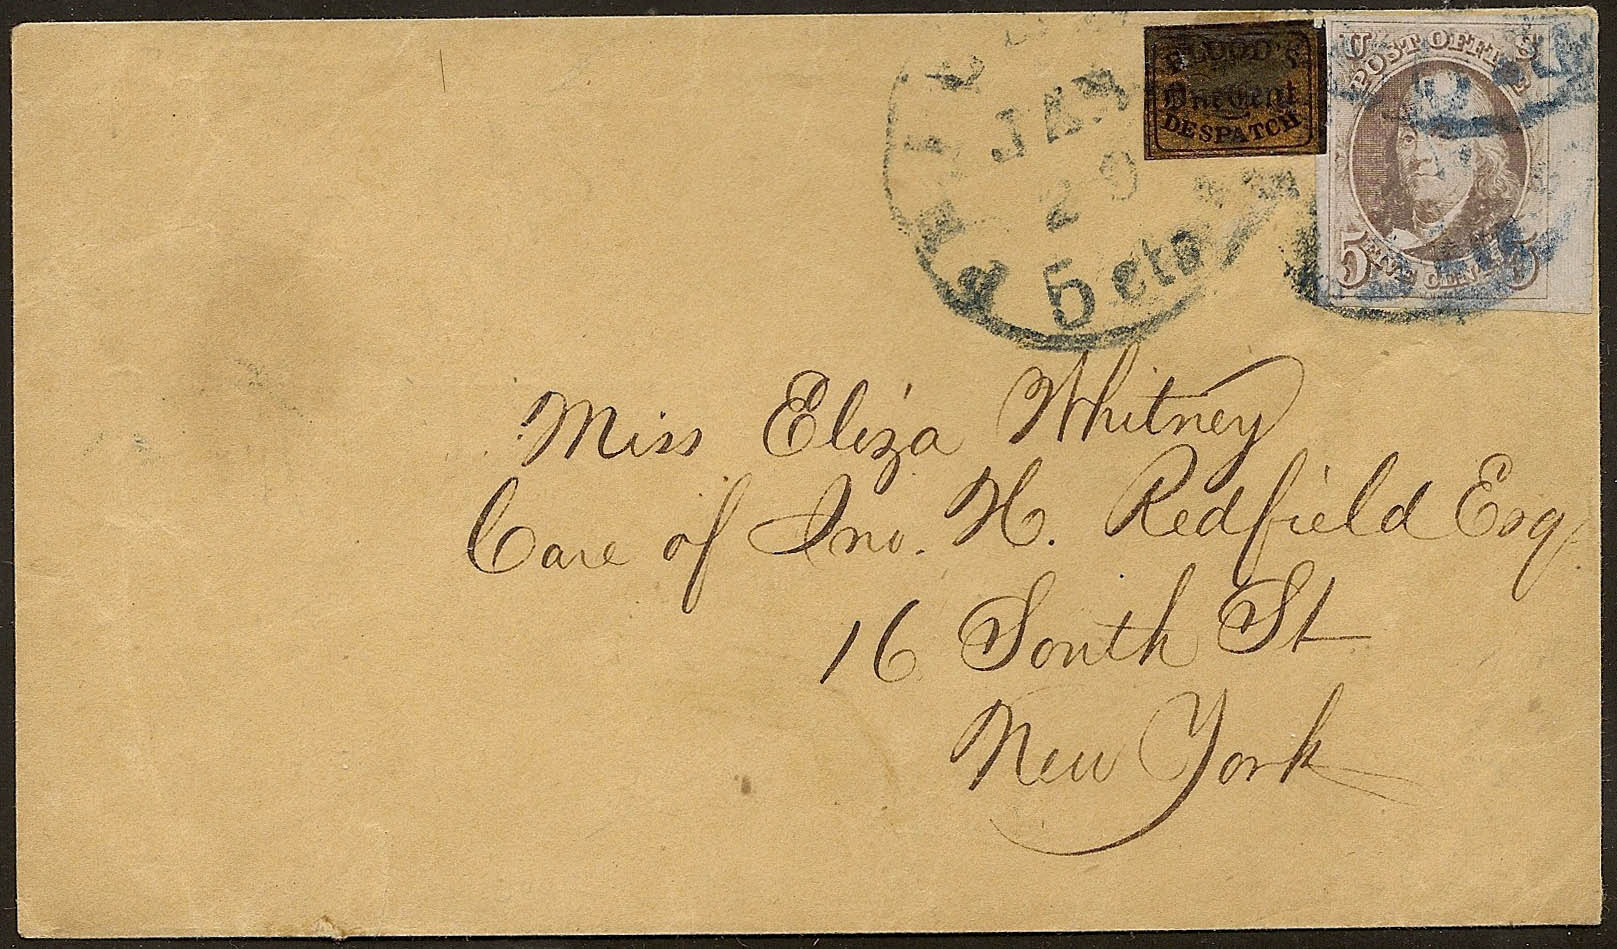 BLOOD'S
One Cent
DESPATCH
U S
POST OFFICE
5 FIVE CENTS 5
JAN
29
5 cts
Miss Eliza Whitney
Care of Jno. H. Redfield Esq
16 South St
New York